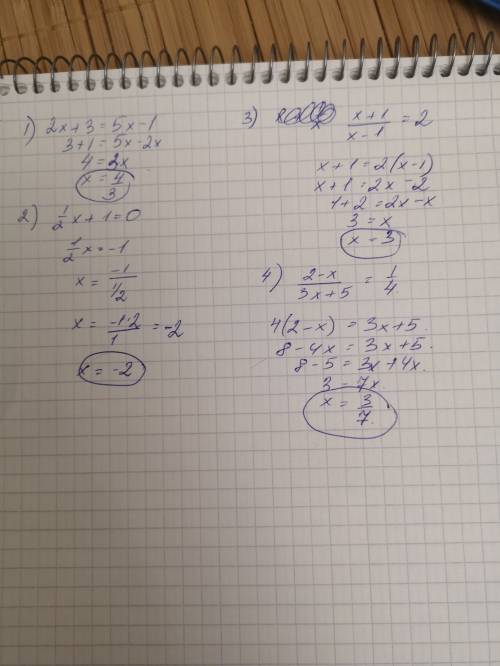 1) 2x+3=5x-1
3+1=5x-2x
4=3x
x=4/3
2) 1/2 x+1=0
1/2 x=-1
x=-1/1/2
x=-1·2/1=-2
x=-2
3) x+1/x-1=2
x+1=2(x-1)
x+1=2x-2
1+2=2x-x
3=x
x=3
4) 2-x/3x+5=1/4
4(2-x)=3x+5
8-4x=3x+5
8-5=3x+4x
3=7x
x=3/7